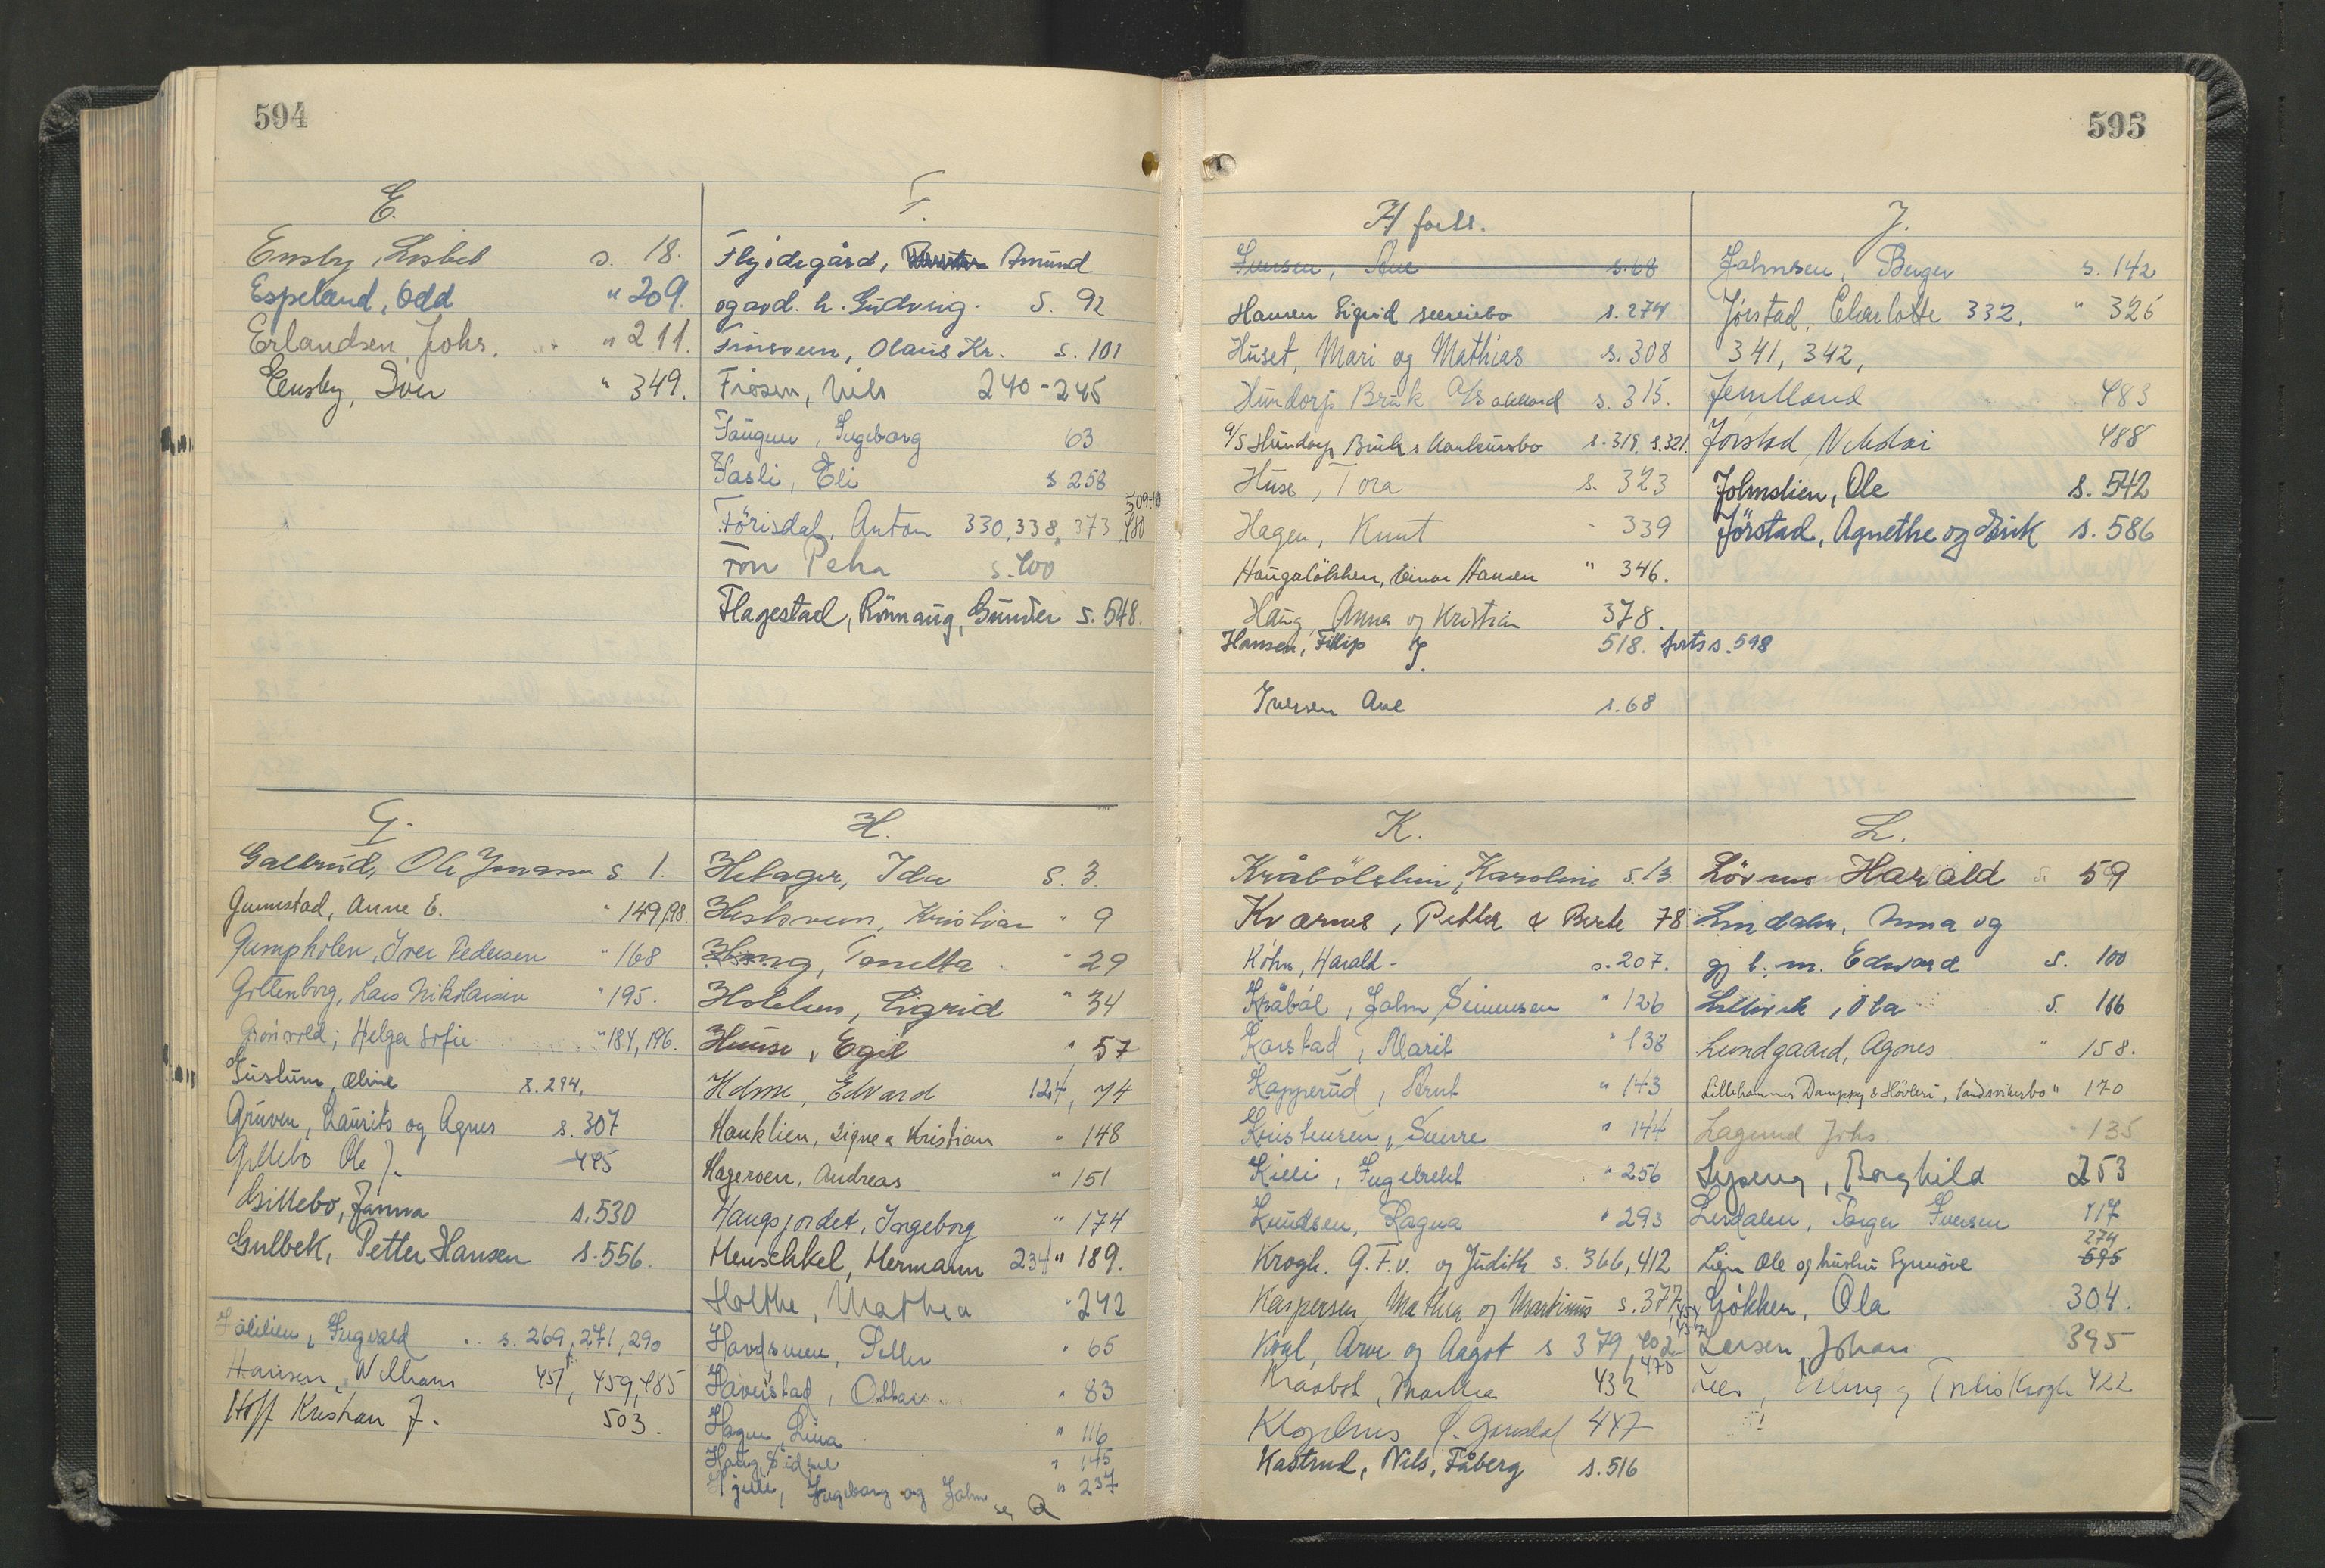 594
E.
Ensby, Lisbet s. 18.
Espeland, Odd " 209.
Erlandsen, Johs. " 211.
Ensby, Iver " 349.
F.
Flyödegård, Amund
og avd. h. Gudveig. S. 92
Finsveen, Olaus Kr. s. 101
Fiösen, Nils 240-245
Faugner, Ingeborg 63
Fasli, Eli s 258
509-10
Förisdal, Anton 330, 338, 373, 480
Fon Peha s. 400
Flagestad, Rönnaug, Gunder s. 548.
G.
Galtrud, Ole Johansen s. 1.
Gunnstad, Anne E. " 149, 198.
Gumpholen, Iver Pedersen " 168
Gottenborg, Lars Nikolaisen " 195.
Grönvold, Helga Sofie " 184, 196.
Guslum, Oline s. 294,
Gruven, Laurits og Agnes s. 307
Gillebo Ole J. 495
Gillebo, Janna s. 530
Gulbek, Petter Hansen s. 556.
Jölilien, Ingvald s. 269, 271, 290
Hansen, Wilhans 451, 459, 485
Hoff Kristian J. 503.
H.
Helager, Ida S. 3.
Hestsveen, Kristian " 9
Haug, Tonetta " 29
Holeken, Sigrid " 34
Huuse, Egil " 57
Holme, Edvard 124, 74
Hauklien, Signe & Kristian " 148
Hageroen, Andreas " 151
Haugsjordet, Ingeborg " 174
Henschkel, Hermann 234 " 189.
Holthe, Mathea " 242
Havdsveen, Petter " 65
Haverstad, Ottar " 83
Hagen, Lina " 116
Haug, Sidsel " 145
Hjelle, Ingeborg og John " 237
595
H forts.
Iversen, Ane s. 68
Hansen Sigrid seereiebo s. 274
Huset, Mari og Mathias s. 308
Hundorp Bruk A/S s. 315.
A/S Hundorp Bruks Konkursbo s. 319, s. 321.
Huse, Tora s. 323
Hagen, Knut " 339
Haugalökken, Einar Hansen " 346.
Haug, Anna og Kristian 378.
Hansen, Fillip 518. forts s. 598
I.
Iversen Ane s. 68
J.
Johnsen, Birger s. 142
Jörstad, Charlotte 332, " 326
341, 342,
Jemtland 483
Jörstad, Nikolai 488
Johnslien, Ole s. 542
Jörstad, Agnethe og Erik s. 586
K.
Kråbölslien, Karoline s. 13.
Kvarnes, Petter & Berte 78
Köhn, Harald - s. 207.
Kråböl, John Simensen " 126
Karstad, Marit " 138
Kapperud, Arnt " 143
Kristensen, Sverre " 144
Killi, Ingebrekt " 256
Knudsen, Ragna " 293
Krogh. G.F.v. og Judith s. 366, 412
Kaspersen, Mathea og Martinus s. 377,
Kval, Arne og Aagot s 379
Kraaböl, Marthea 432, 470
447
Kastrud, Nils, Fåberg s. 516
L.
Lövmo Harald s. 59
Lindalen, Anna og
gj l. m. Edward s. 100
Lillevik, Ola s. 186
Lundgaard, Agnes " 158.
Lillehammer Dampsag & Hövleri, " 170
Lagund Johs " 135
Lyseng, Borghild 253
Lierdalen, Torger Iversen 117
274
Lien Ole og hustru Synnöve 595
Lökken, Ola 304.
Larsen, Johan 395
Krogh 422